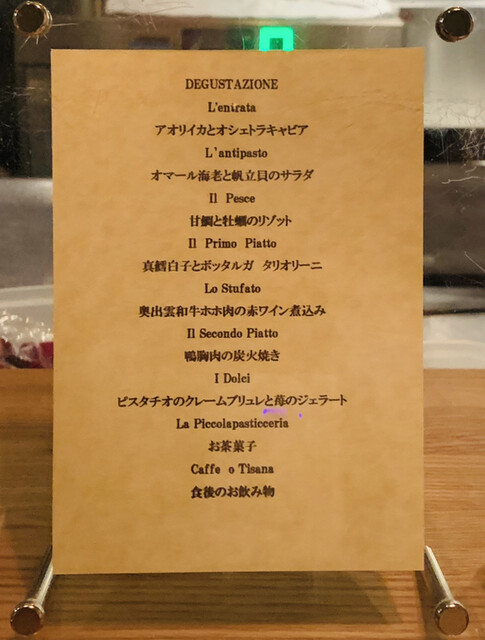 DEGUSTAZIONE
L'entrata
アオリイカとオシェトラキャビア
L'antipasto
オマール海老と帆立貝のサラダ
Il Pesce
甘鯛と牡蠣のリゾット
Il Primo Piatto
真鱈白子とボッタルガ タリオリーニ
Lo Stufato
奥出雲和牛ホホ肉の赤ワイン煮込み
Il Secondo Piatto
鴨胸肉の炭火焼き
I Dolci
ピスタチオのクレームブリュレと苺のジェラート
La Piccolapasticceria
お茶菓子
Caffe o Tisana
食後のお飲み物